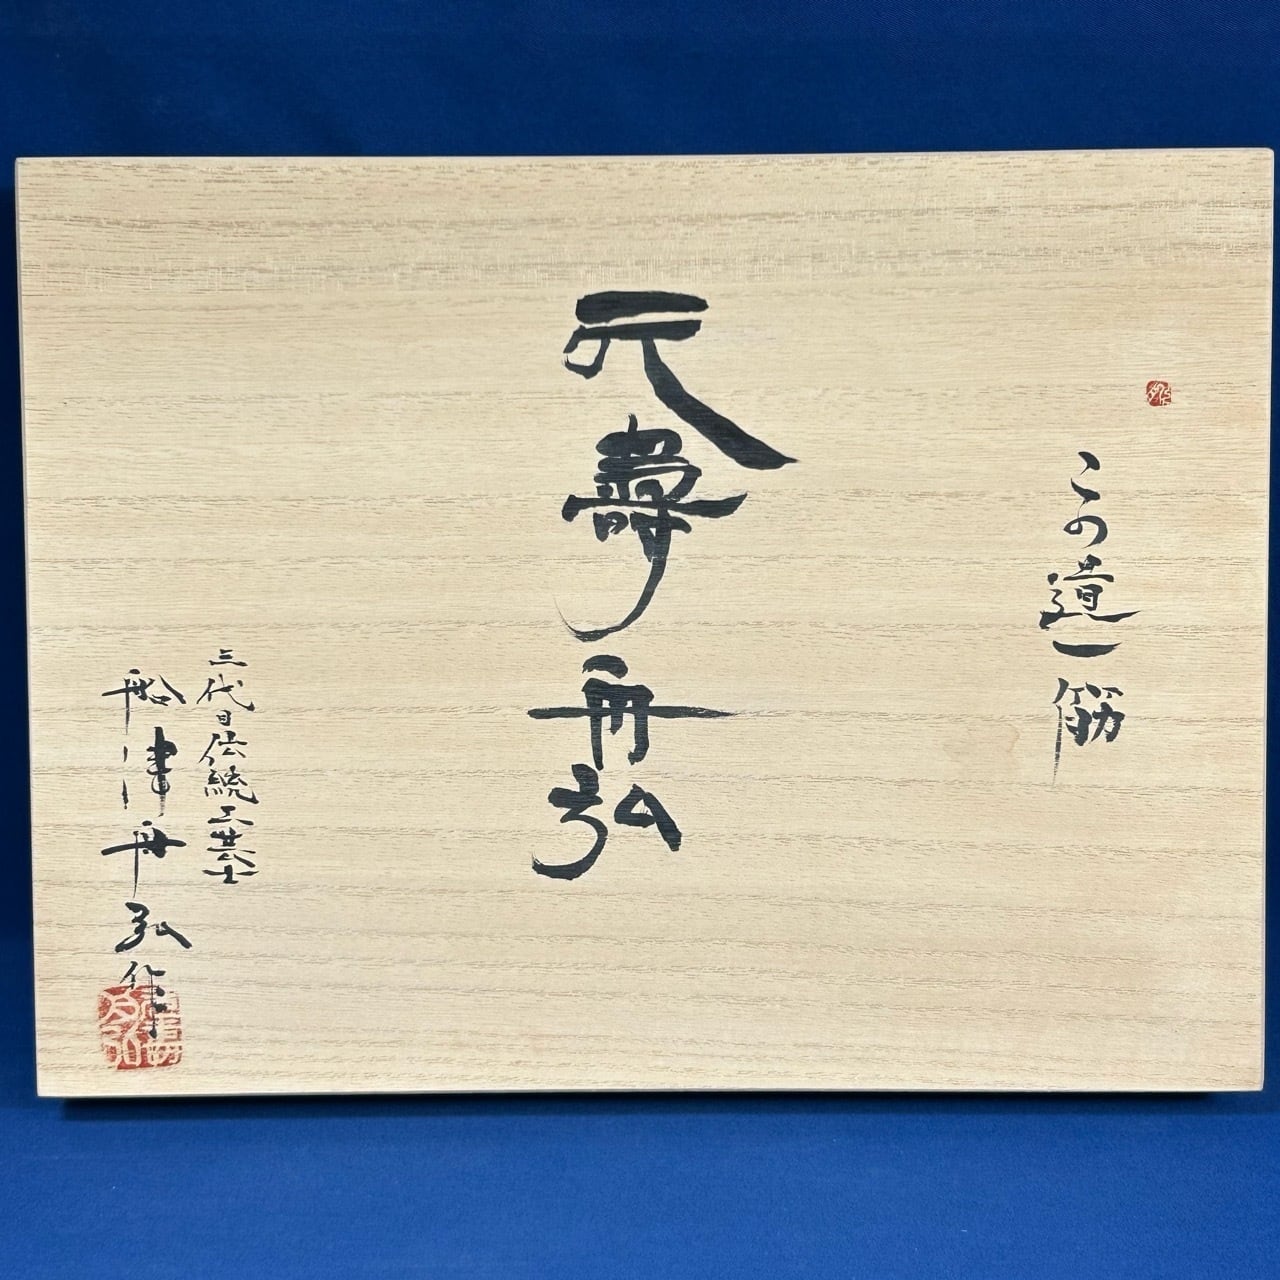 この道一筋
元壽舟弘
三代目伝統工芸士
船津舟弘作